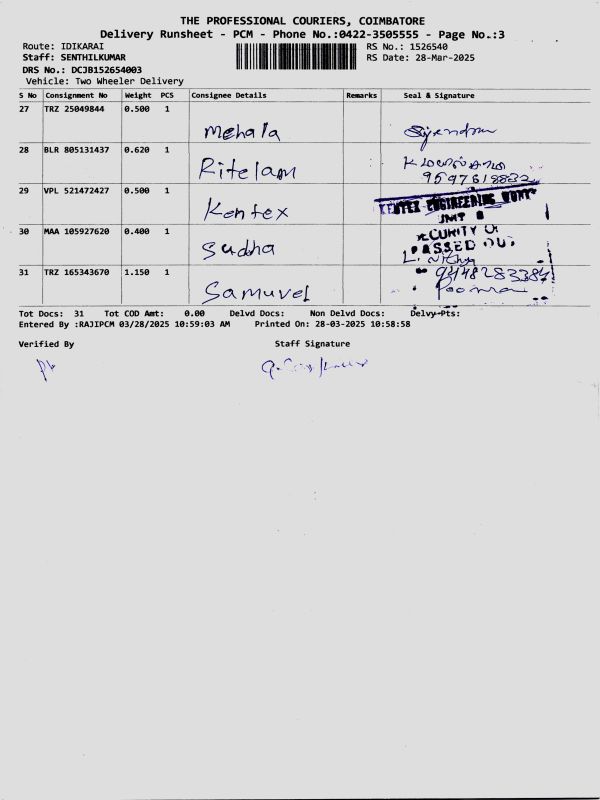 THE PROFESSIONAL COURIERS, COIMBATORE
Delivery Runsheet - PCM - Phone No.:0422-3505555 - Page No.:3
Route: IDIKARAI RS No.: 1526540
Staff: SENTHILKUMAR RS Date: 28-Mar-2025
DRS No.: DCJB152654003
Vehicle: Two Wheeler Delivery
S No Consignment No Weight PCS Consignee Details Remarks Seal & Signature
27 TRZ 25049844 0.500 1
Mehala
28 BLR 805131437 0.620 1
Ritelam
9597618832
29 VPL 521472427 0.500 1
Kentex
KENTEX ENGINEERING WORK
UNIT
30 MAA 105927620 0.400 1
Sudha
SECURITY
PASSED OUT
31 TRZ 165343670 1.150 1
9448283384
Samuvel
Poornan
Tot Docs: 31 Tot COD Amt: 0.00 Delvd Docs: Non Delvd Docs: Delvy-Pts:
Entered By :RAJIPCM 03/28/2025 10:59:03 AM Printed On: 28-03-2025 10:58:58
Verified By Staff Signature